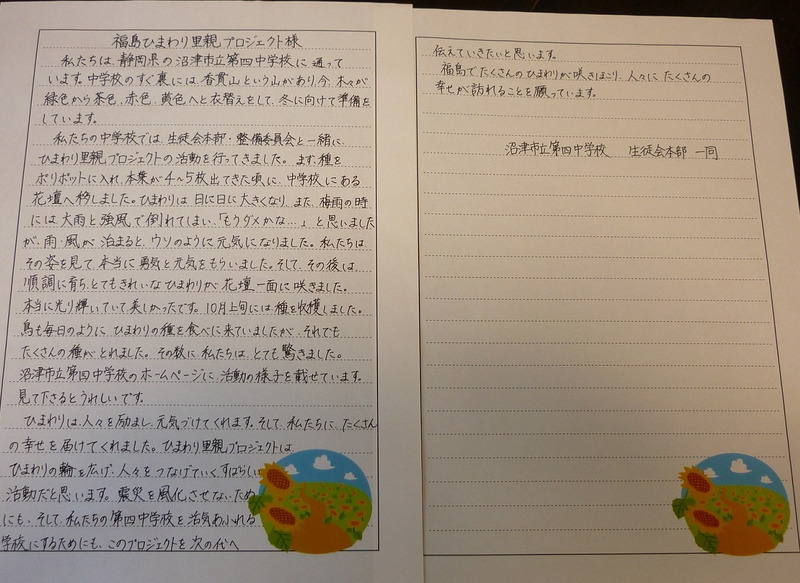 福島ひまわり里親プロジェクト様
私たちは、静岡県の沼津市立第四中学校に通って
います。中学校のすぐ裏には香貫山という山があり、今、木々が
緑色から茶色、赤色、黄色へと衣替えをして、冬に向けて準備を
しています。
私たちの中学校では、生徒会本部・整備委員会と一緒に、
ひまわり里親プロジェクトの活動を行ってきました。まず、種を
ポリポットに入れ、本葉が4~5枚出てきた頃に、中学校にある
花壇へ移しました。ひまわりは日に日に大きくなり、また、梅雨の時
には大雨と強風で倒れてしまい、「もうダメかな…」と思いました
が、雨・風が治まると、ウソのように元気になりました。私たちは
その姿を見て、本当に勇気と元気をもらいました。そして、その後は、
順調に育ち、とてもきれいなひまわりが花壇一面に咲きました。
本当に光り輝いていて美しかったです。10月上旬には種を収穫しました。
鳥も毎日のようにひまわりの種を食べに来ていましたが、それでも
たくさんの種がとれました。その数に私たちは、とても驚きました。
沼津市立第四中学校のホームページに、活動の様子を載せています。
見て下さるとうれしいです。
ひまわりは、人々を励まし、元気づけてくれます。そして、私たちに、たくさん
の幸せを届けてくれました。ひまわり里親プロジェクトは、
ひまわりの輪を広げ、人々をつなげていくすばらしい
活動だと思います。震災を風化させないため
にも、そして、私たちの第四中学校を活気あふれる
学校にするためにも、このプロジェクトを次の代へ
伝えていきたいと思います。
福島でたくさんのひまわりが咲きほこり、人々にたくさんの
幸せが訪れることを願っています。
沼津市立第四中学校 生徒会本部 一同